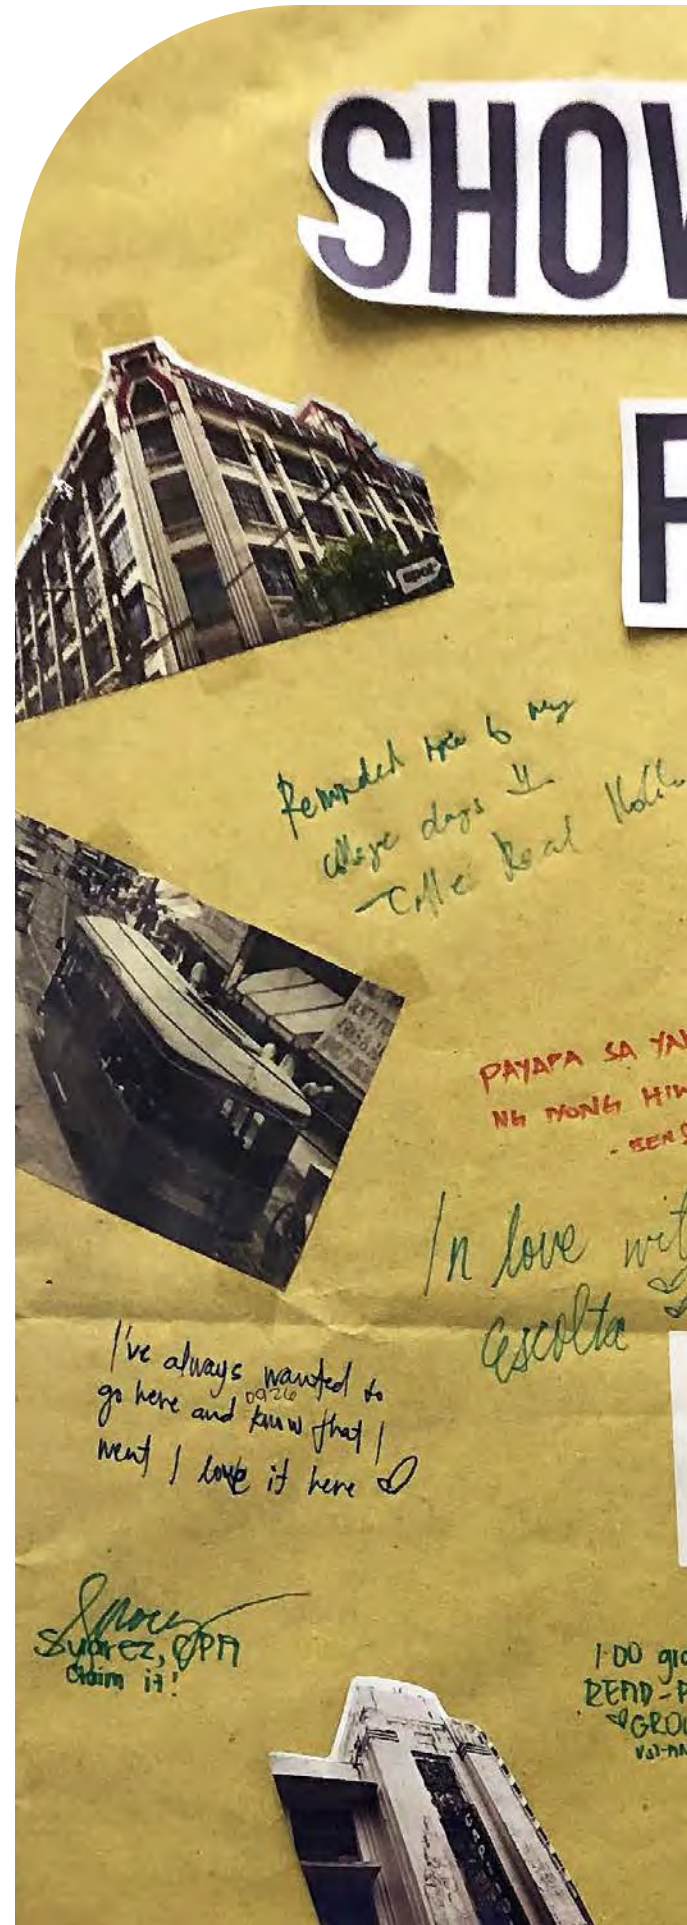 SHOW
F
Reminded me of my
college days
Coffee Real
PAYAPA SA YA
NG IYONG HIN
- BEN
In love wit
escolta
I've always wanted to
go here and know that I
0926
went I love it here
Suarez, CPA
Claim it!
1 DO gro
READ-P
GROU